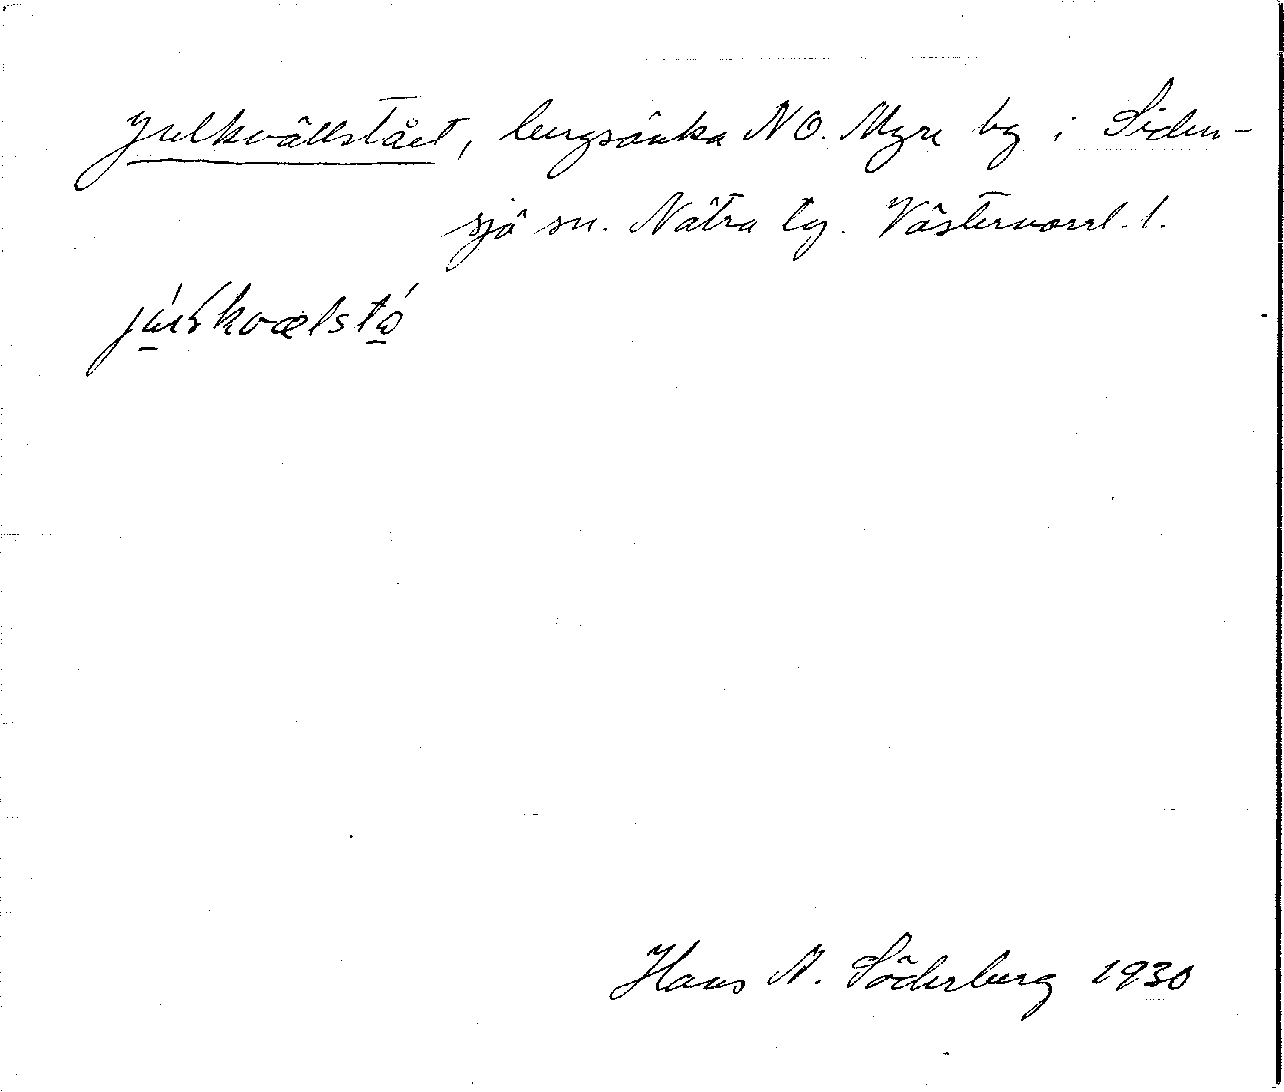 Julkvällstået, bergsänka NO. Myre by i Siden-
sjö sn. Nätra tg. Västernorrl. l.
Hans A. Söderberg 1930